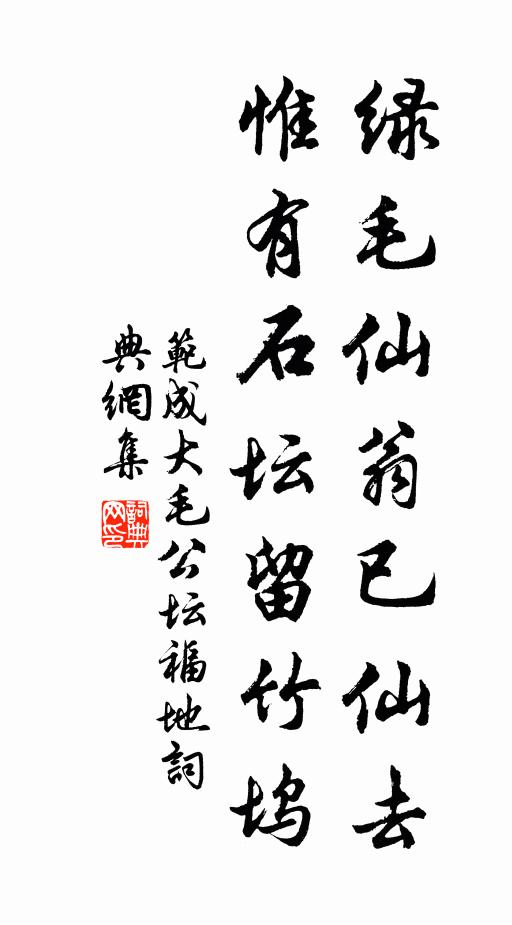 绿毛仙翁已仙去
惟有石坛留竹坞
範成大毛公坛福地詞
典網集
詞典网印